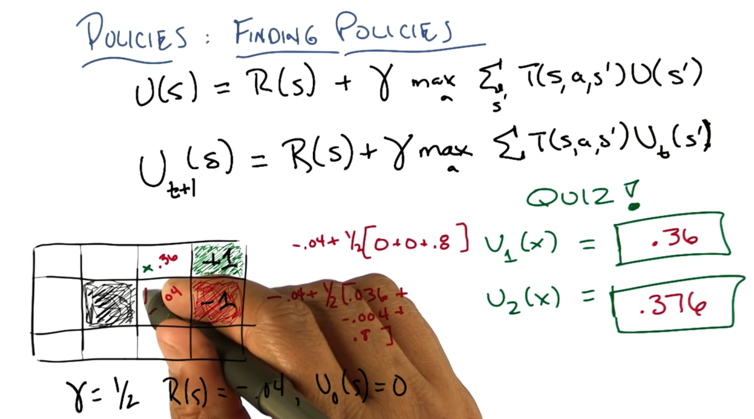 POLICIES: FINDING POLICIES
U(s) = R(s) + γ max_a Σ_s' T(s,a,s')U(s')
U_t+1(s) = R(s) + γ max_a Σ T(s,a,s')U_t(s')
QUIZ!
-.04 + 1/2[0+0+.8] U_1(x) = .36
-.04 + 1/2[.036 + U_2(x) = .376
-.004 +
.8]
x .36 +1
04 -1
γ = 1/2 R(s) = -.04, U_0(s) = 0